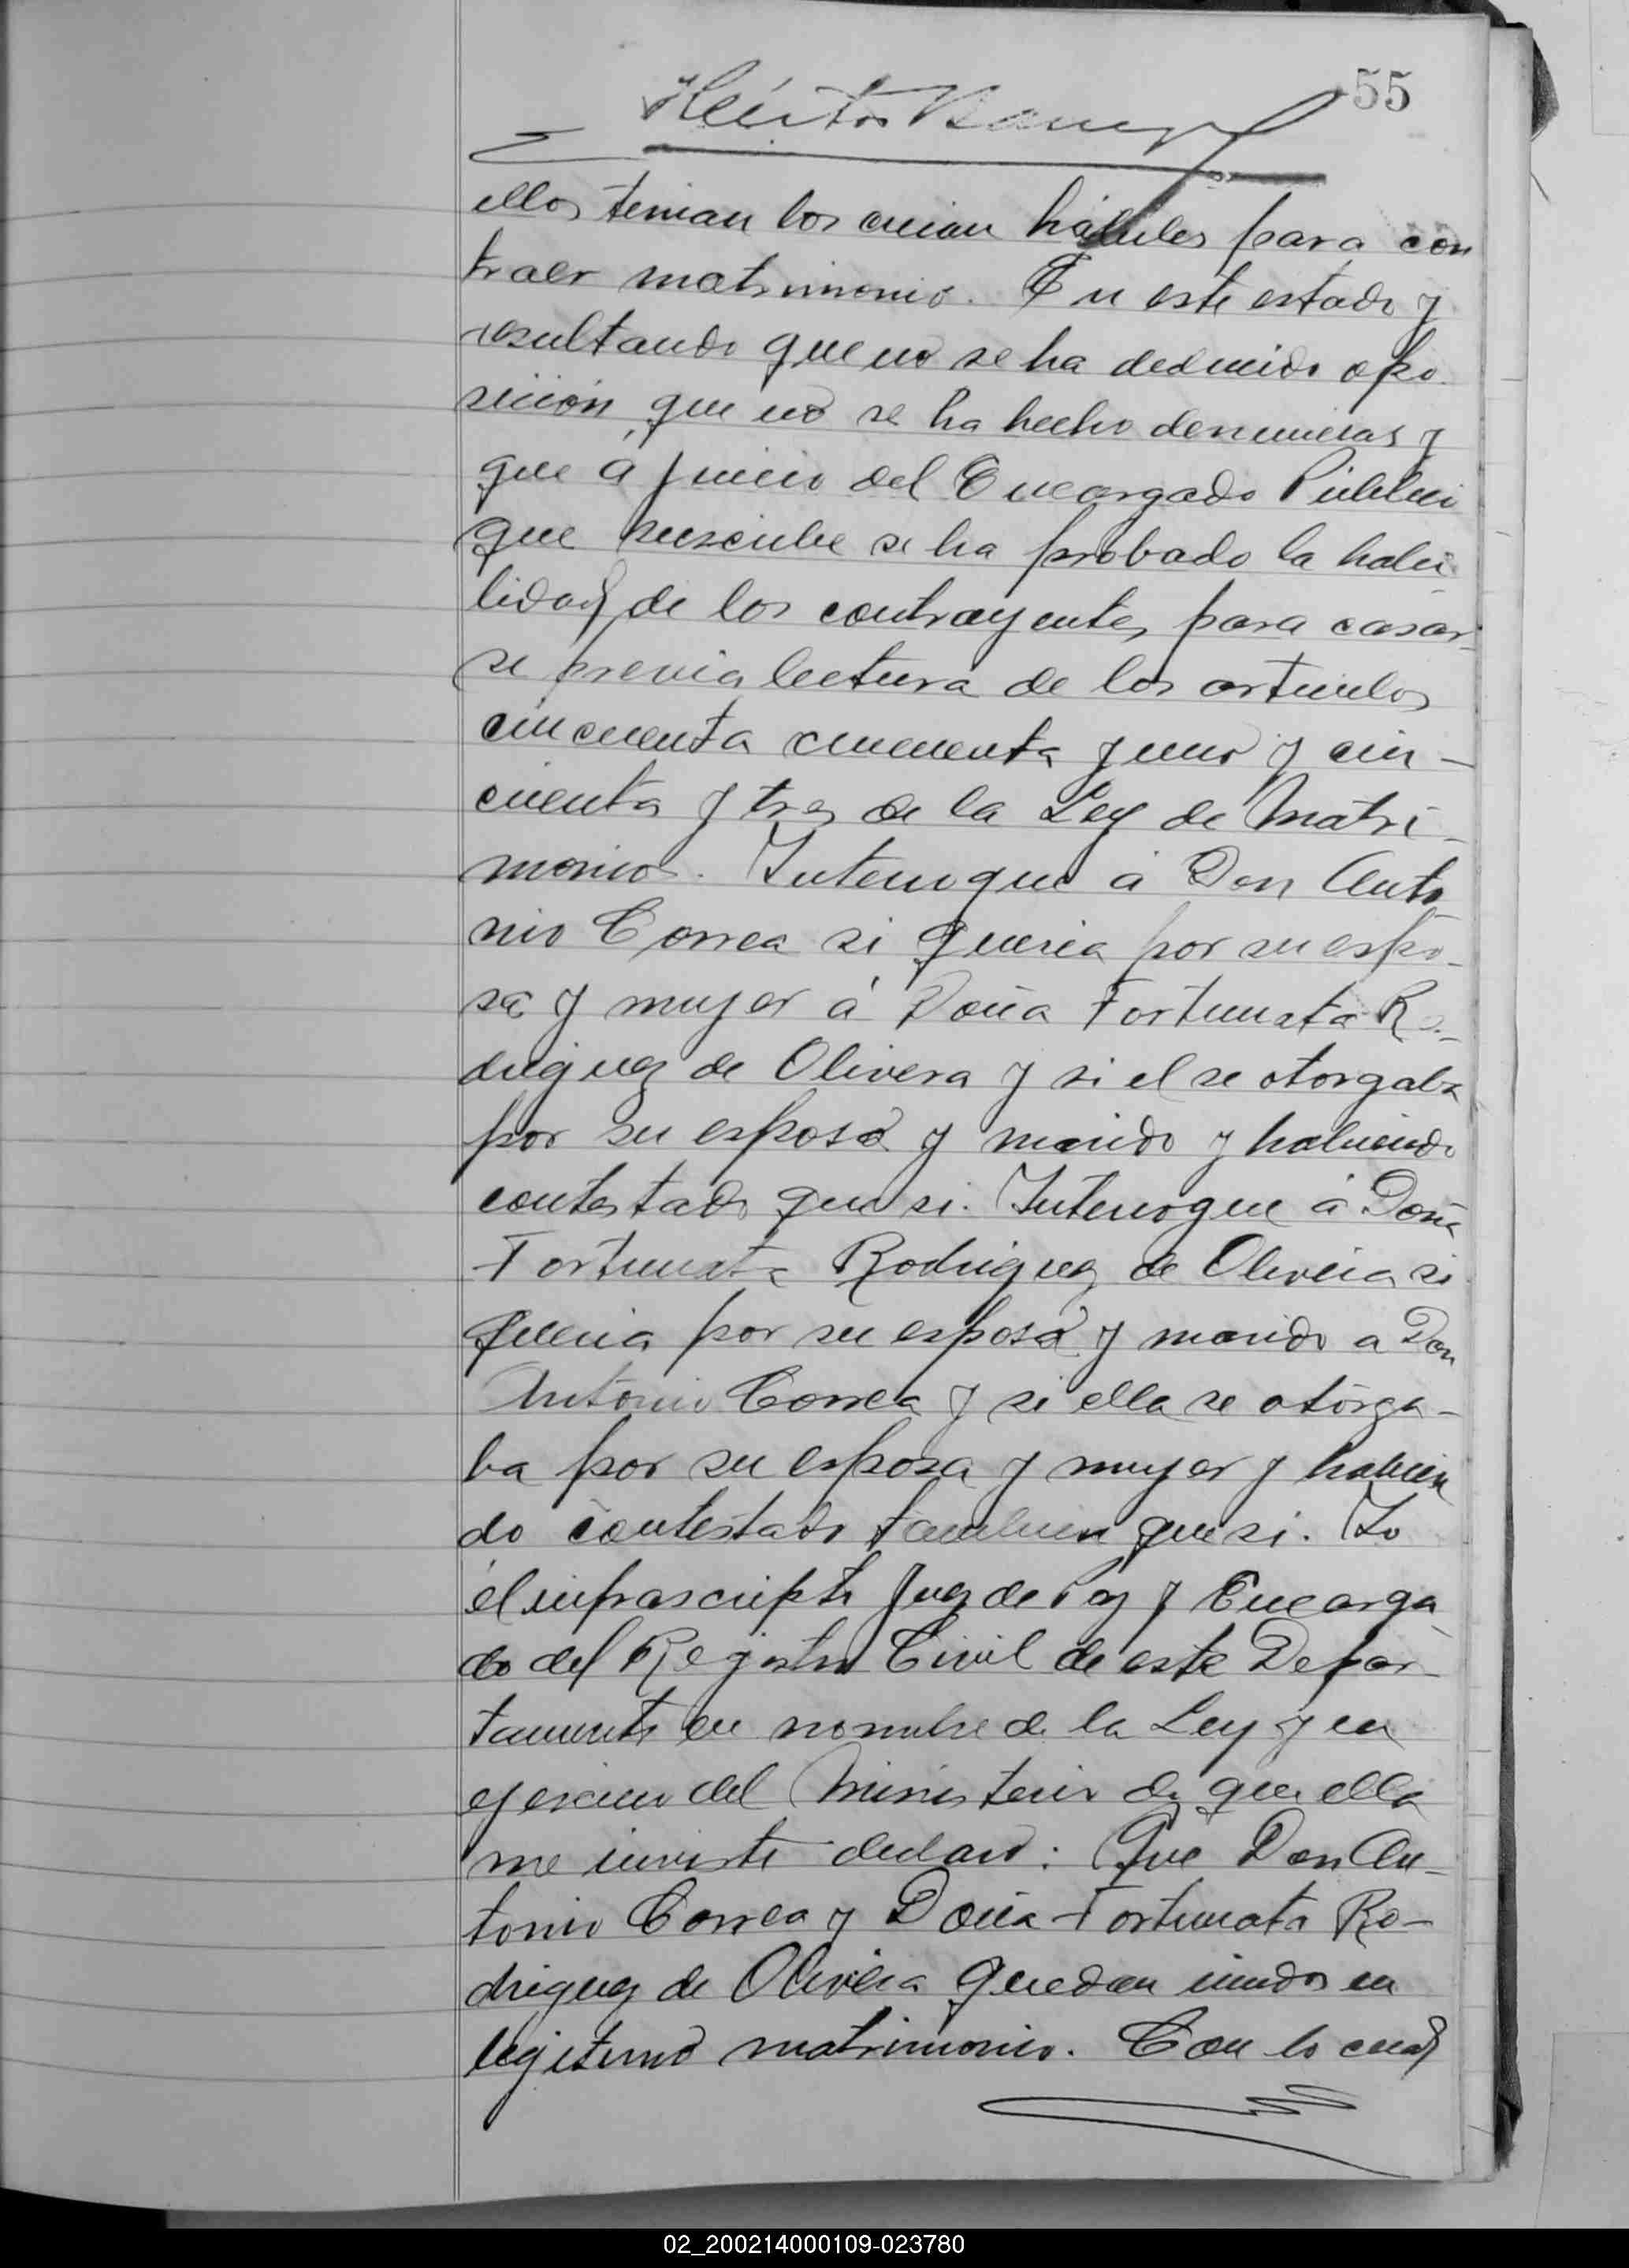 55
Héctor
ellos tenian los creian hábiles para con
traer matrimonio. En este estado y
resultando que no se ha deducido opo-
sicion, que no se ha hecho denuncias y
que á juicio del Encargado Público
que suscribe se ha probado la habi-
lidad de los contrayentes para casar-
se previa lectura de los articulos
cincuenta cincuenta y uno y cin-
cuenta y tres de la Ley de Matri-
monio. Interrogué á Don Anto
nio Correa si queria por su espo-
sa y mujer á Doña Fortunata Ro-
driguez de Olivera y si el se otorgaba
por su esposo y marido y habiendo
contestado que si. Interrogue á Doña
Fortunata Rodriguez de Olivera si
queria por su esposo y marido a Don
Antonio Correa y si ella se otorga-
ba por su esposa y mujer y habien
do contestado tambien que si. Yo
el infrascripto Juez de Paz y Encarga
do del Registro Civil de este Depar-
tamento en nombre de la Ley y en
ejercicio del Ministerio de que ella
me inviste declaro: Que Don An-
tonio Correa y Doña Fortunata Ro-
driguez de Olivera quedan unidos en
legitimo matrimonio. Con lo cual
02_200214000109-023780